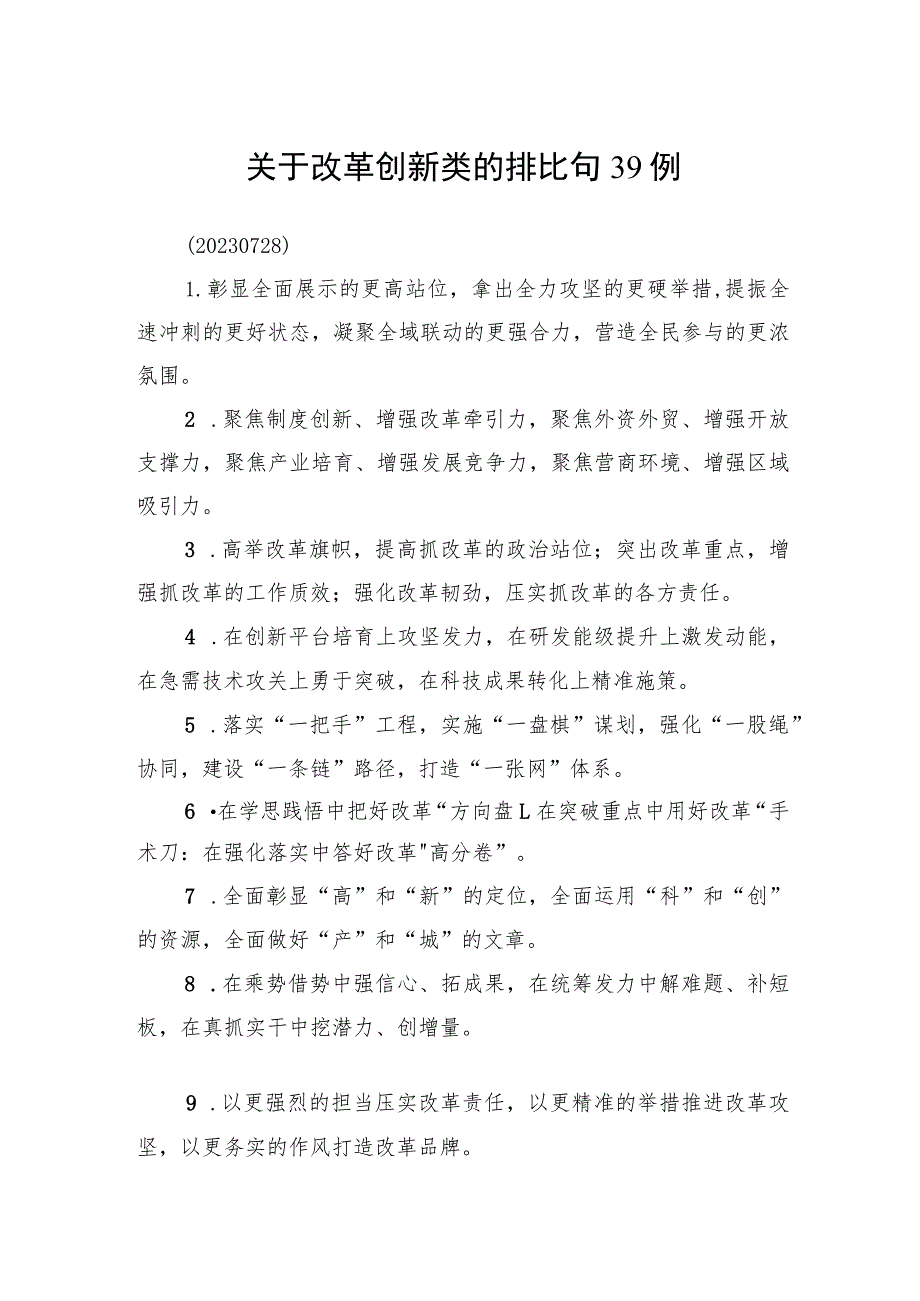 关于改革创新类的排比句39例
(20230728)
1.彰显全面展示的更高站位，拿出全力攻坚的更硬举措,提振全
速冲刺的更好状态，凝聚全域联动的更强合力，营造全民参与的更浓
氛围。
2 .聚焦制度创新、增强改革牵引力，聚焦外资外贸、增强开放
支撑力，聚焦产业培育、增强发展竞争力，聚焦营商环境、增强区域
吸引力。
3 .高举改革旗帜，提高抓改革的政治站位；突出改革重点，增
强抓改革的工作质效；强化改革韧劲，压实抓改革的各方责任。
4 .在创新平台培育上攻坚发力，在研发能级提升上激发动能，
在急需技术攻关上勇于突破，在科技成果转化上精准施策。
5 .落实“一把手”工程，实施“一盘棋”谋划，强化“一股绳”
协同，建设“一条链”路径，打造“一张网”体系。
6 •在学思践悟中把好改革“方向盘L在突破重点中用好改革“手
术刀：在强化落实中答好改革"高分卷”。
7 .全面彰显“高”和“新”的定位，全面运用“科”和“创”
的资源，全面做好“产”和“城”的文章。
8 .在乘势借势中强信心、拓成果，在统筹发力中解难题、补短
板，在真抓实干中挖潜力、创增量。
9 .以更强烈的担当压实改革责任，以更精准的举措推进改革攻
坚，以更务实的作风打造改革品牌。